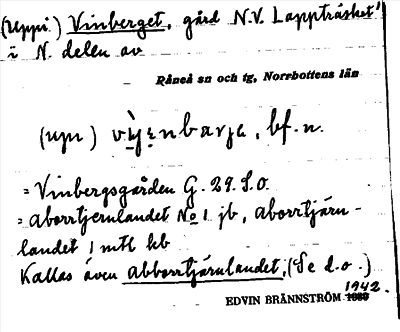 (Uppi) Vinberget, gård N.V. Lappträsket
i N. delen av
Råneå sn och tg, Norrbottens län
(upi) , bf. n.
= Vinbergsgården G. 29. S.O.
= Aborrtjernlandet No 1 jb, Aborrtjärn-
landet 1 mtl kb
Kallas även Abborrtjärnlandet, (Se d.o.)
1942.
EDVIN BRÄNNSTRÖM